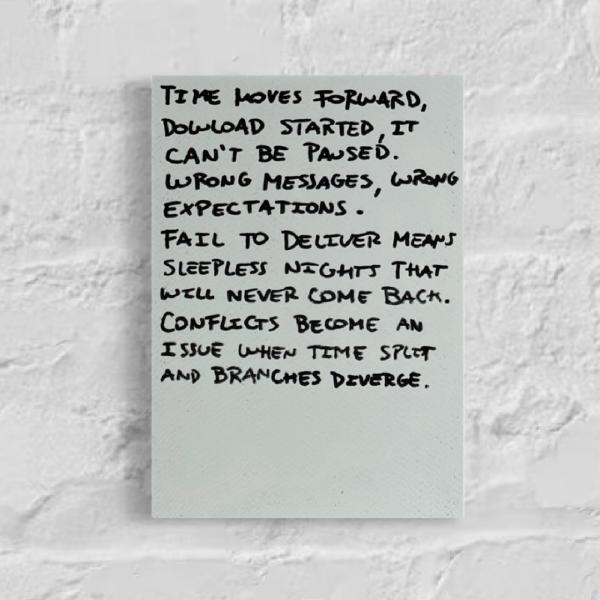 TIME MOVES FORWARD,
DOWLOAD STARTED, IT
CAN'T BE PAUSED.
WRONG MESSAGES, WRONG
EXPECTATIONS.
FAIL TO DELIVER MEANS
SLEEPLESS NIGHTS THAT
WILL NEVER COME BACK.
CONFLICTS BECOME AN
ISSUE WHEN TIME SPLIT
AND BRANCHES DIVERGE.